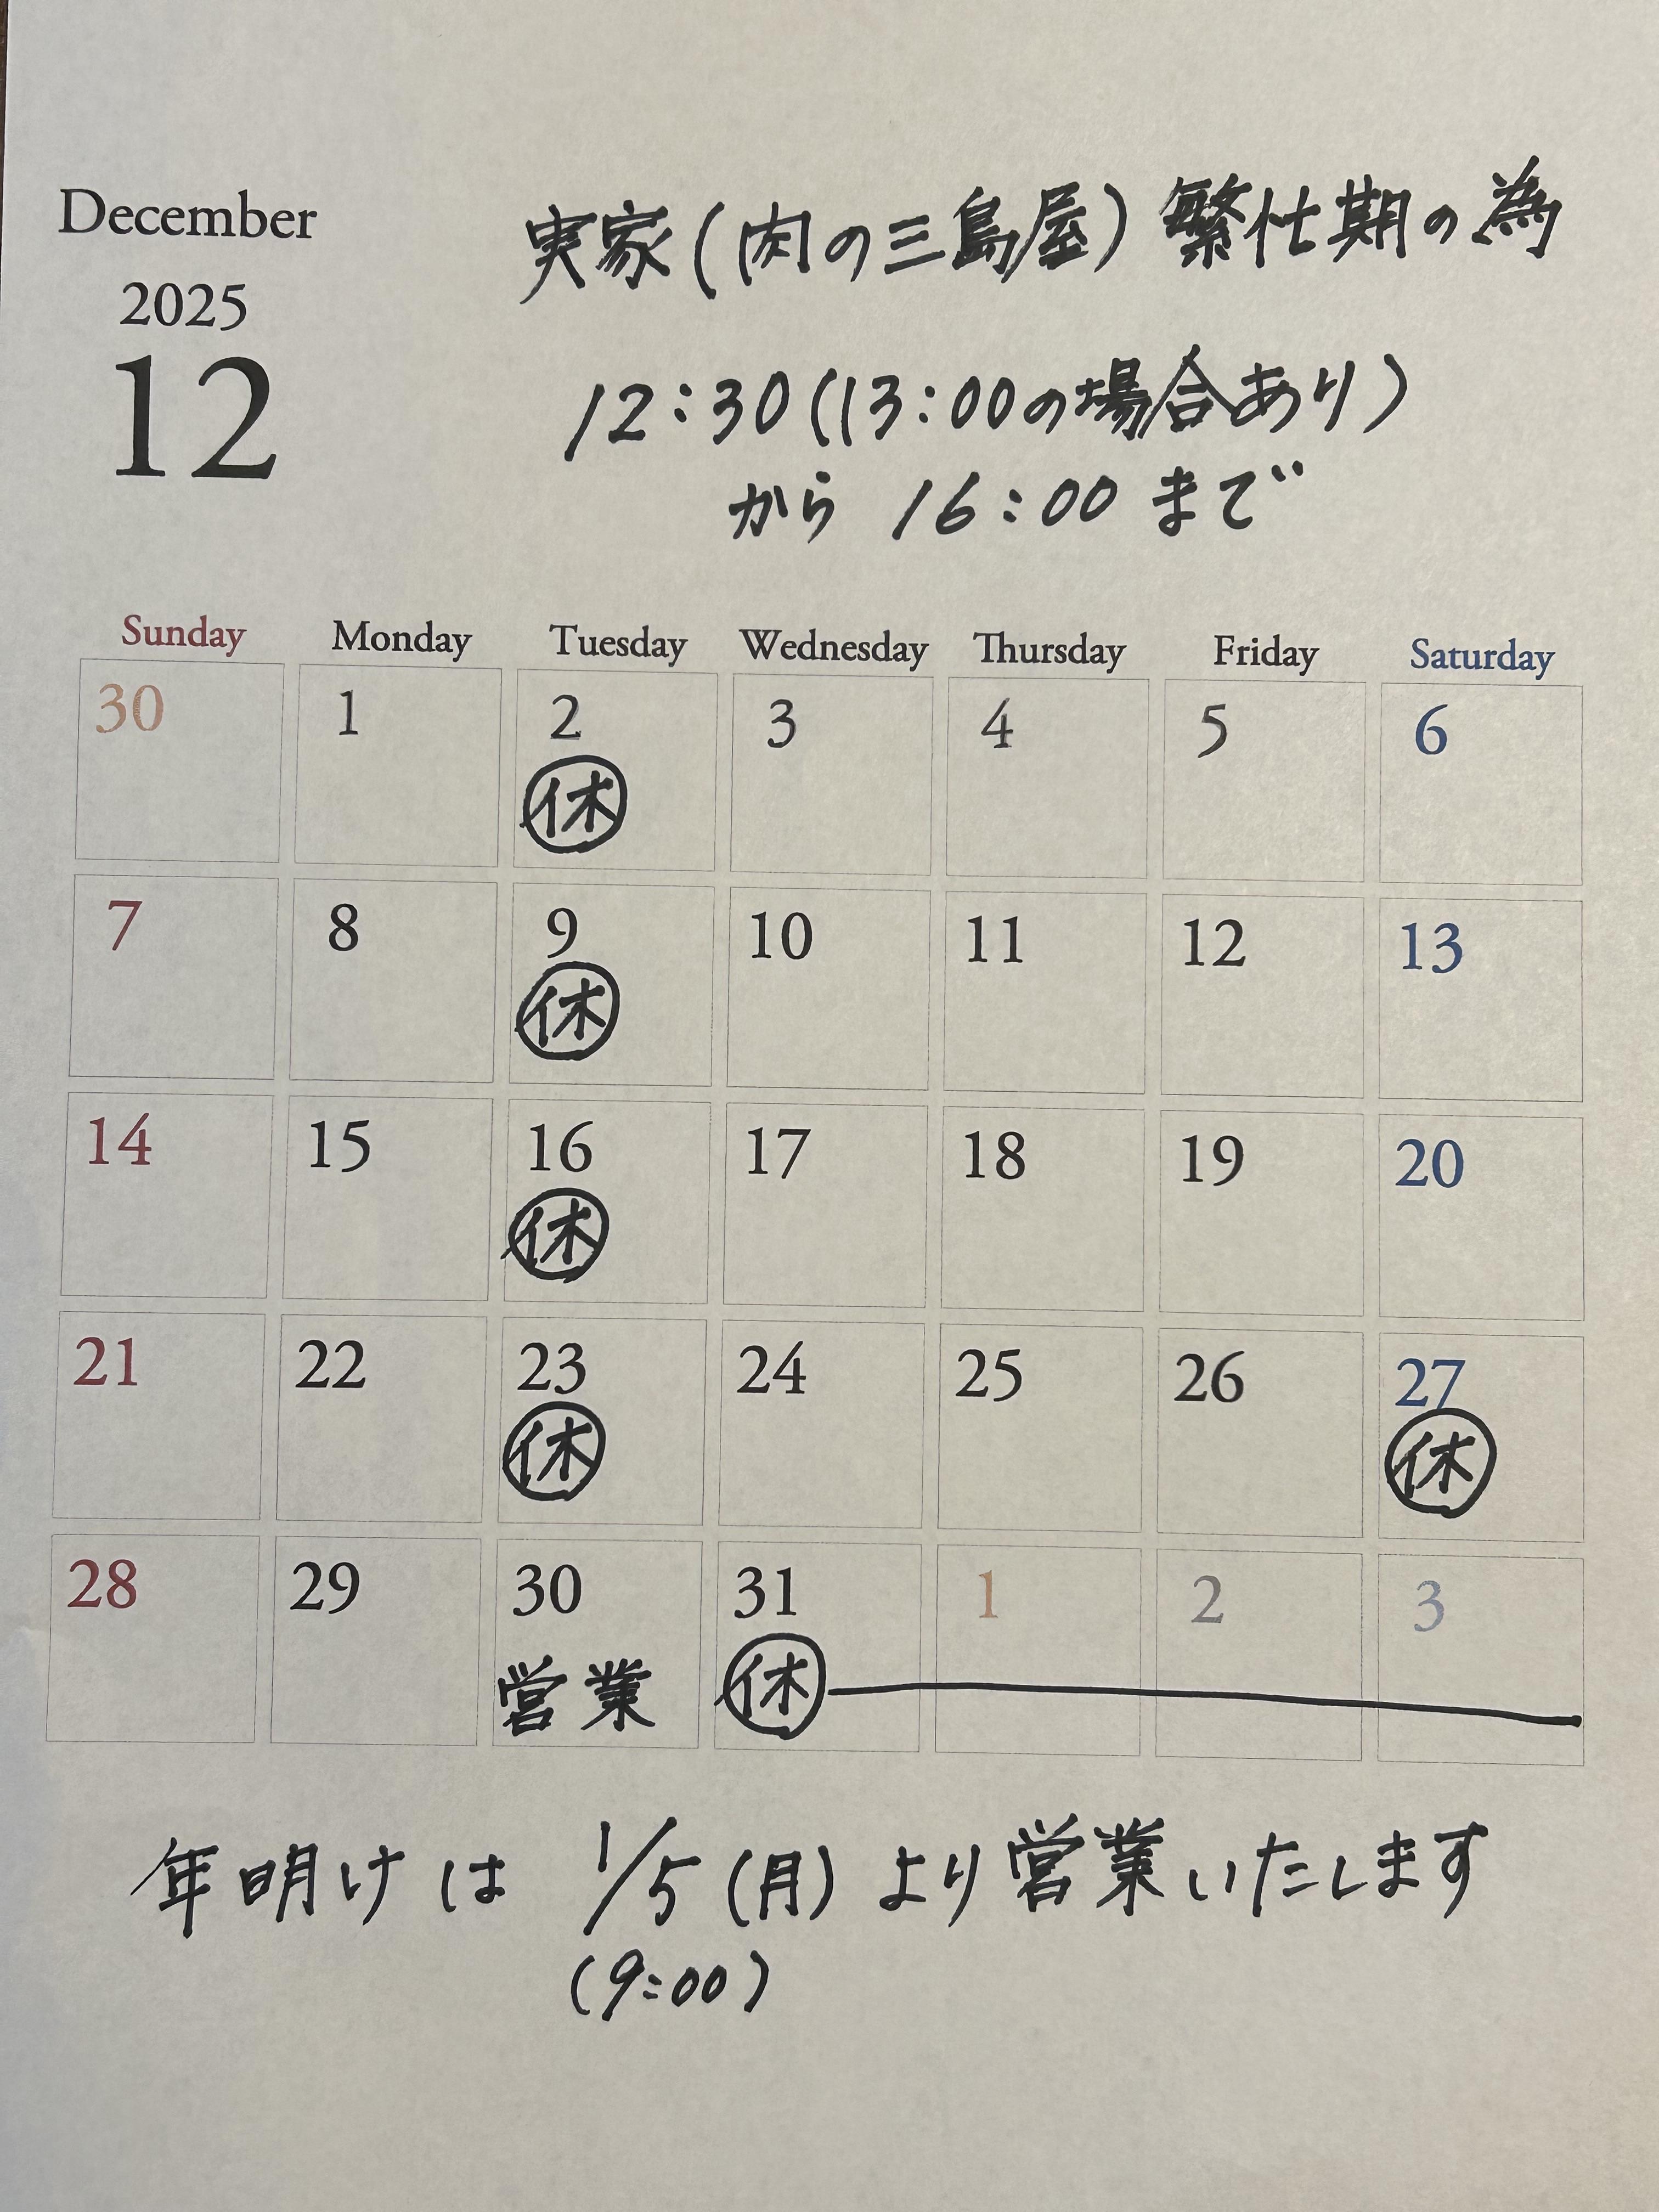 December
2025
12
実家(肉の三島屋)繁忙期の為
12:30(13:00の場合あり)
から 16:00 まで
Sunday Monday Tuesday Wednesday Thursday Friday Saturday
30 1 2 3 4 5 6
休
7 8 9 10 11 12 13
休
14 15 16 17 18 19 20
休
21 22 23 24 25 26 27
休 休
28 29 30 31 1 2 3
営業 休
年明けは 1/5(月)より営業いたします
(9:00)